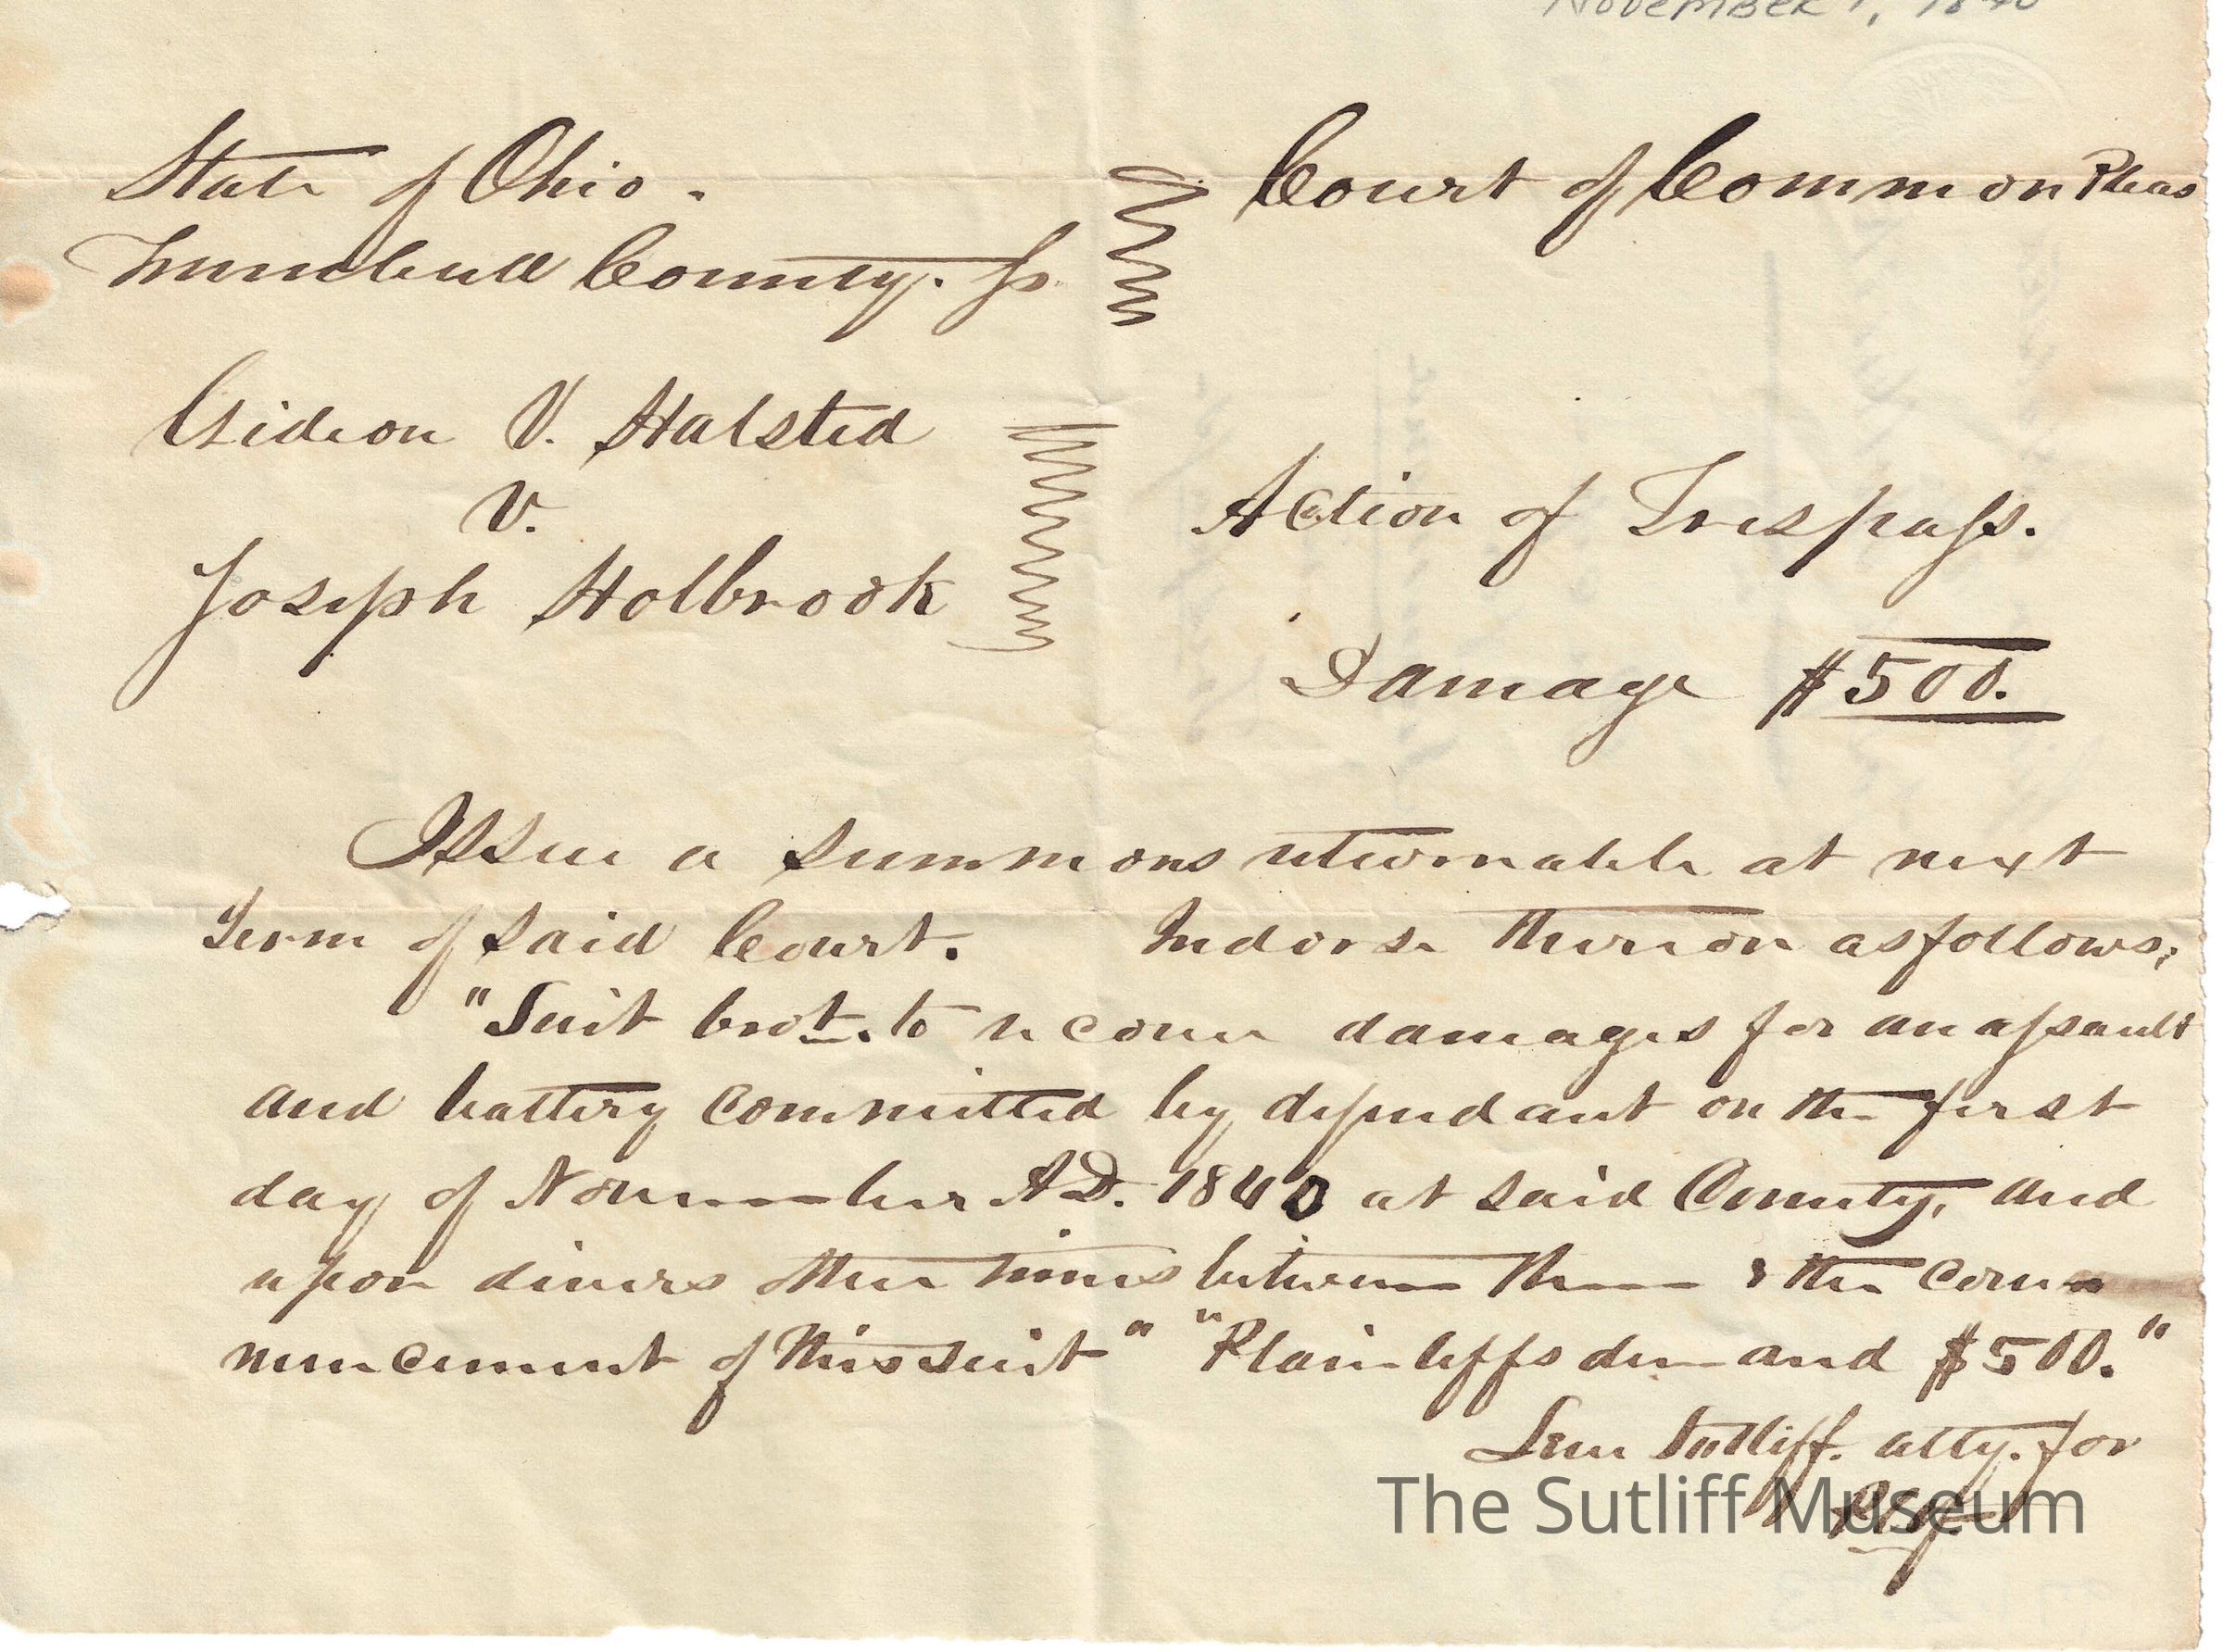 November 1, 1840
State of Ohio. Court of Common Pleas
Trumbull County. ss
Gideon V. Halsted
v. Action of Trespass.
Joseph Holbrook
Damage $500.
Issue a summons returnable at next
Term of said Court. Indorse thereon as follows;
"Suit brot. to recover damages for an assault
and battery committed by defendant on the first
day of November A.D. 1840 at said County, and
upon divers other times between then & the com
mencement of this suit" "Plaintiffs demand $500."
Levi Sutliff. atty. for
Plff.
The Sutliff Museum